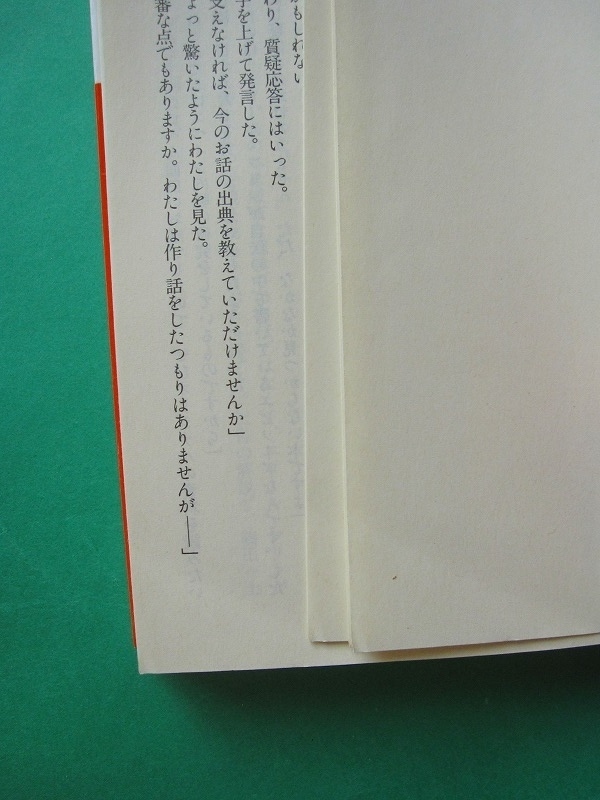 かもしれない
わり、質疑応答にはいった。
手を上げて発言した。
支えなければ、今のお話の出典を教えていただけませんか」
ょっと驚いたようにわたしを見た。
審な点でもありますか。わたしは作り話をしたつもりはありませんが――」